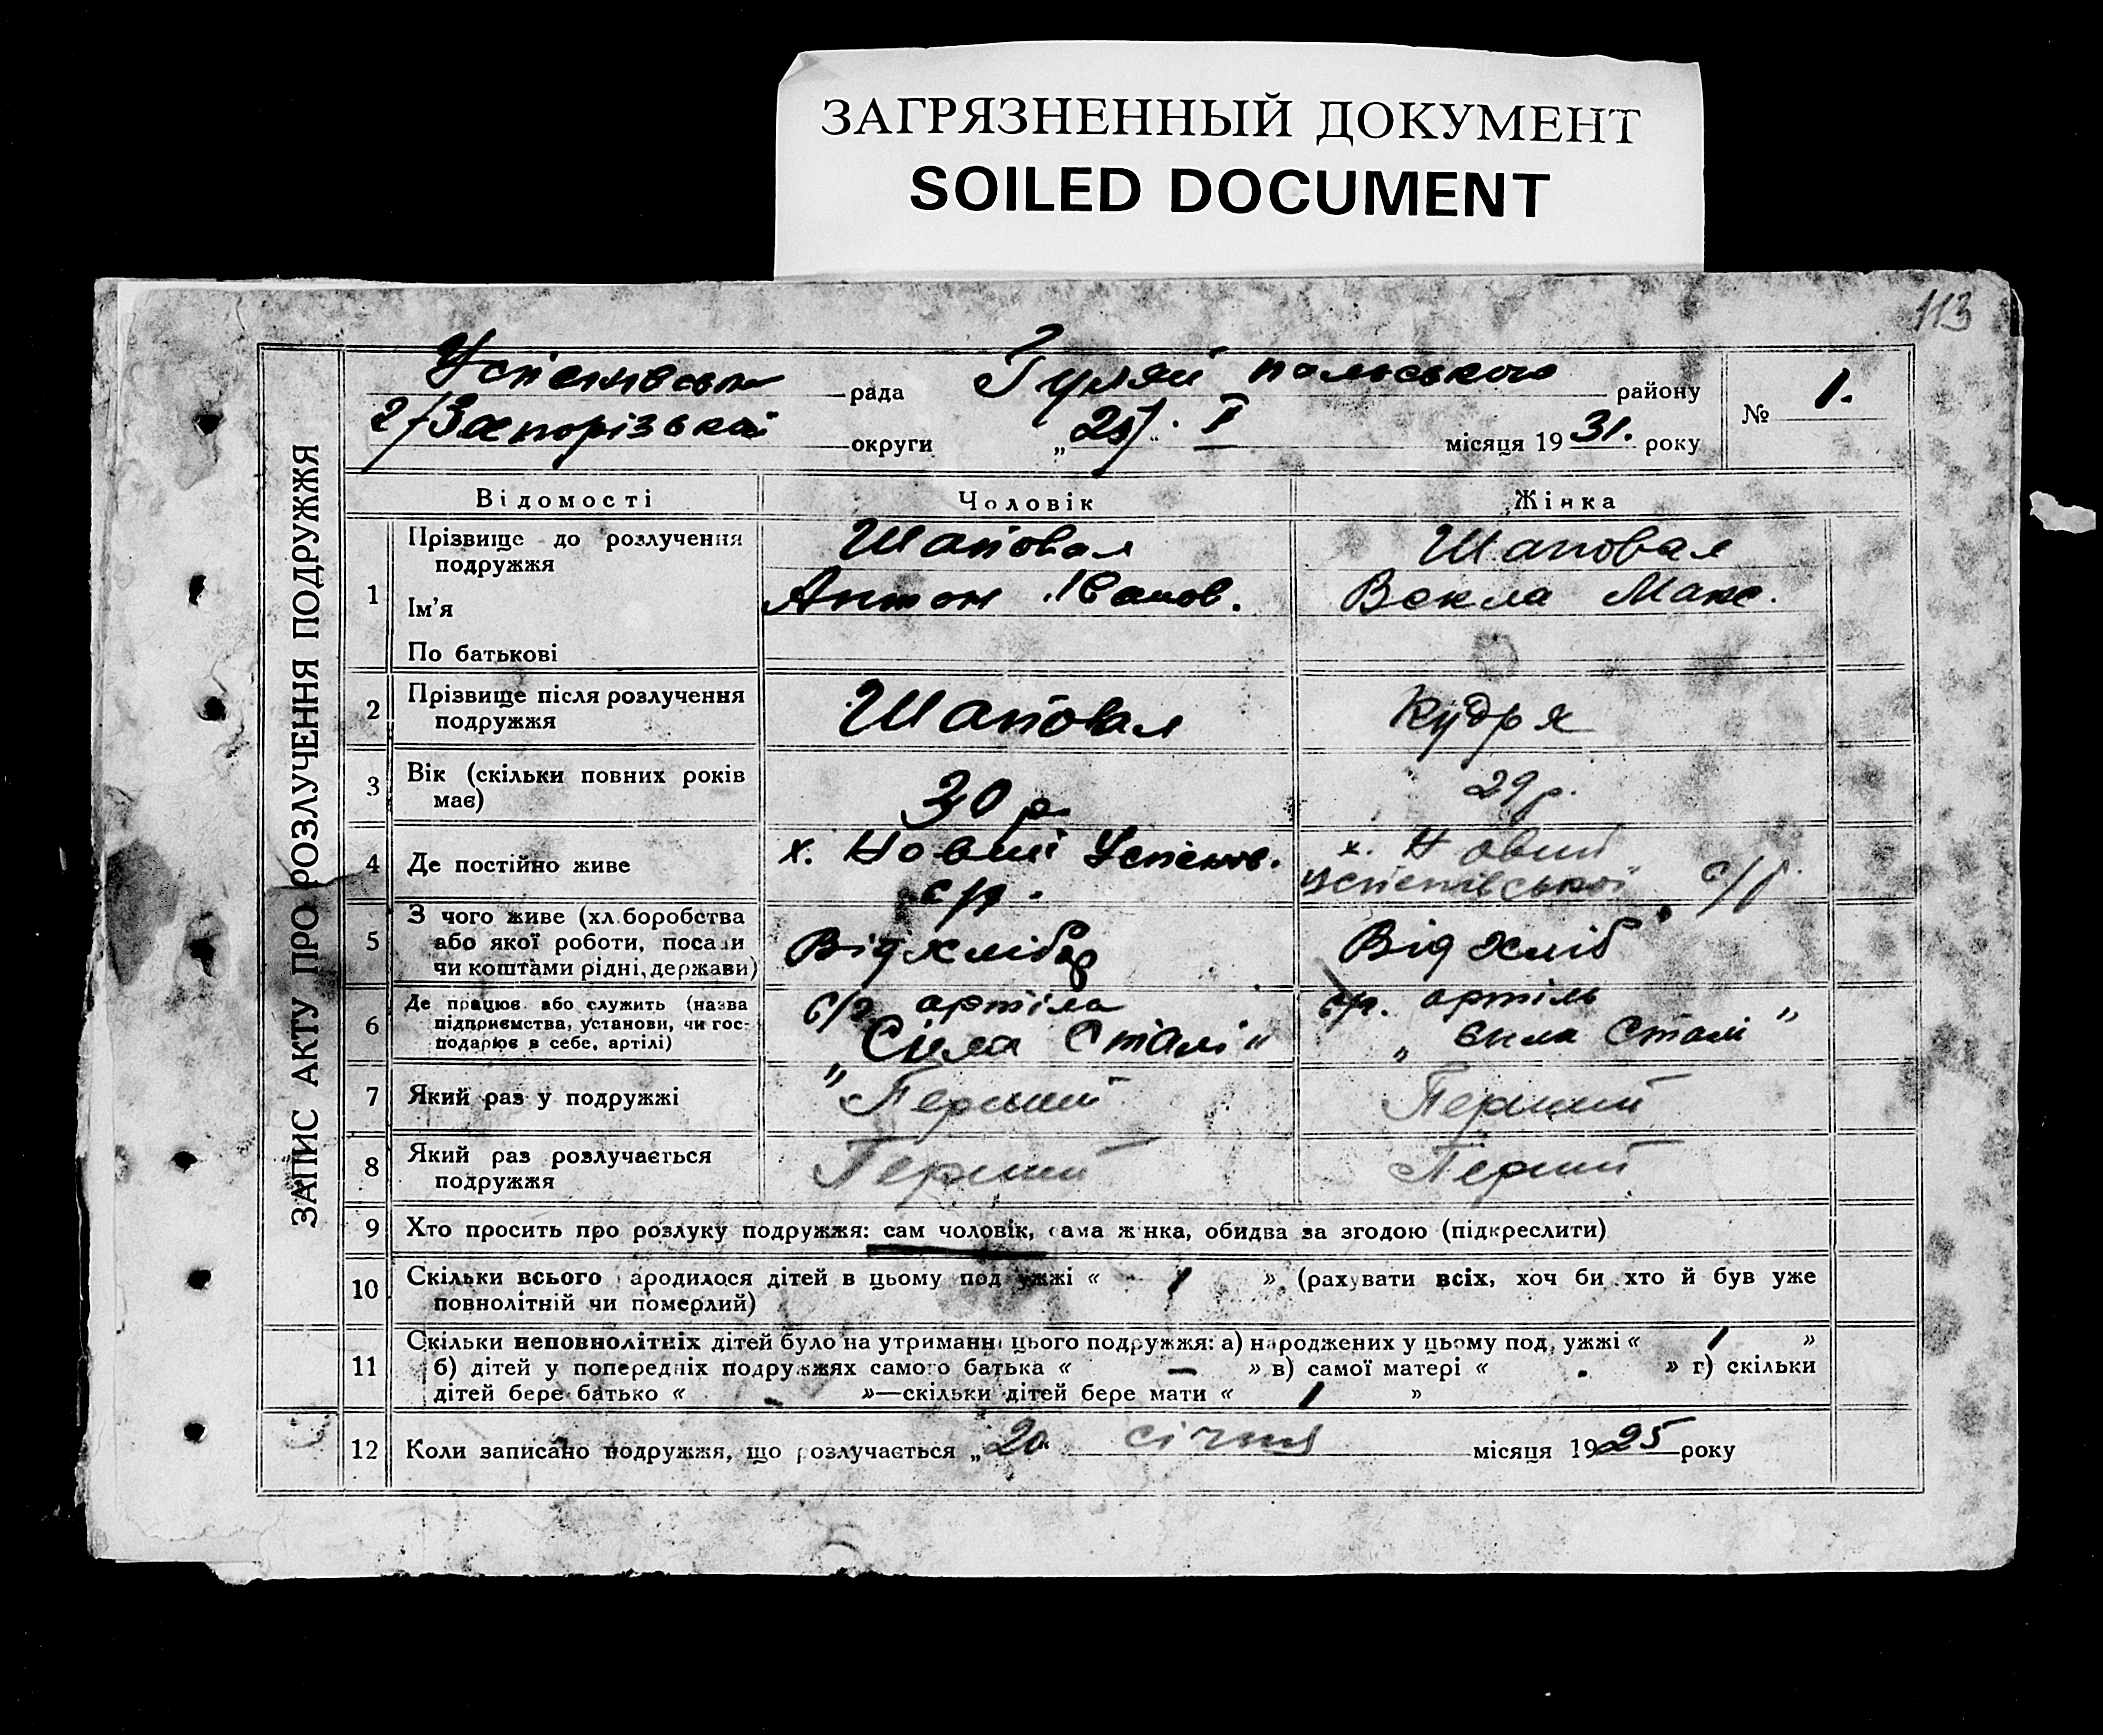 ЗАГРЯЗНЕННЫЙ ДОКУМЕНТ
SOILED DOCUMENT
113
ЗАПИС АКТУ ПРО РОЗЛУЧЕННЯ ПОДРУЖЖЯ
Успенівська рада Гуляй польського району № 1.
Запорізької округи „ 25 “ I місяця 19 31. року
Відомості Чоловік Жінка
1 Прізвище до розлучення подружжя Шаповал Шаповал
Ім'я Антон Іванов. Векла Макс.
По батькові
2 Прізвище після розлучення подружжя Шаповал Кудря
3 Вік (скільки повних років має) 30 р 29 р.
4 Де постійно живе х. Новий Успенів. с/р. х. Новий Успенівської с/р.
5 З чого живе (хл.боробства або якої роботи, посади чи коштами рідні, держави) Від хлібор Від хліб
6 Де працює або служить (назва підприємства, установи, чи господарює в себе, артілі) с/г артіль „Сила Сталі“ с/г. артіль „Сила Сталі“
7 Який раз у подружжі Перший Перший
8 Який раз розлучається подружжя Перший Перший
9 Хто просить про розлуку подружжя: сам чоловік, сама жінка, обидва за згодою (підкреслити)
10 Скільки всього народилося дітей в цьому подружжі « 1 », (рахувати всіх, хоч би хто й був уже
повнолітній чи померлий)
11 Скільки неповнолітніх дітей було на утриманні цього подружжя: а) народжених у цьому подружжі « 1 »
б) дітей у попередніх подружжях самого батька « — » в) самої матері « - » г) скільки
дітей бере батько « - »—скільки дітей бере мати « 1 »
12 Коли записано подружжя, що розлучається „ 20 “ січня місяця 1925 року